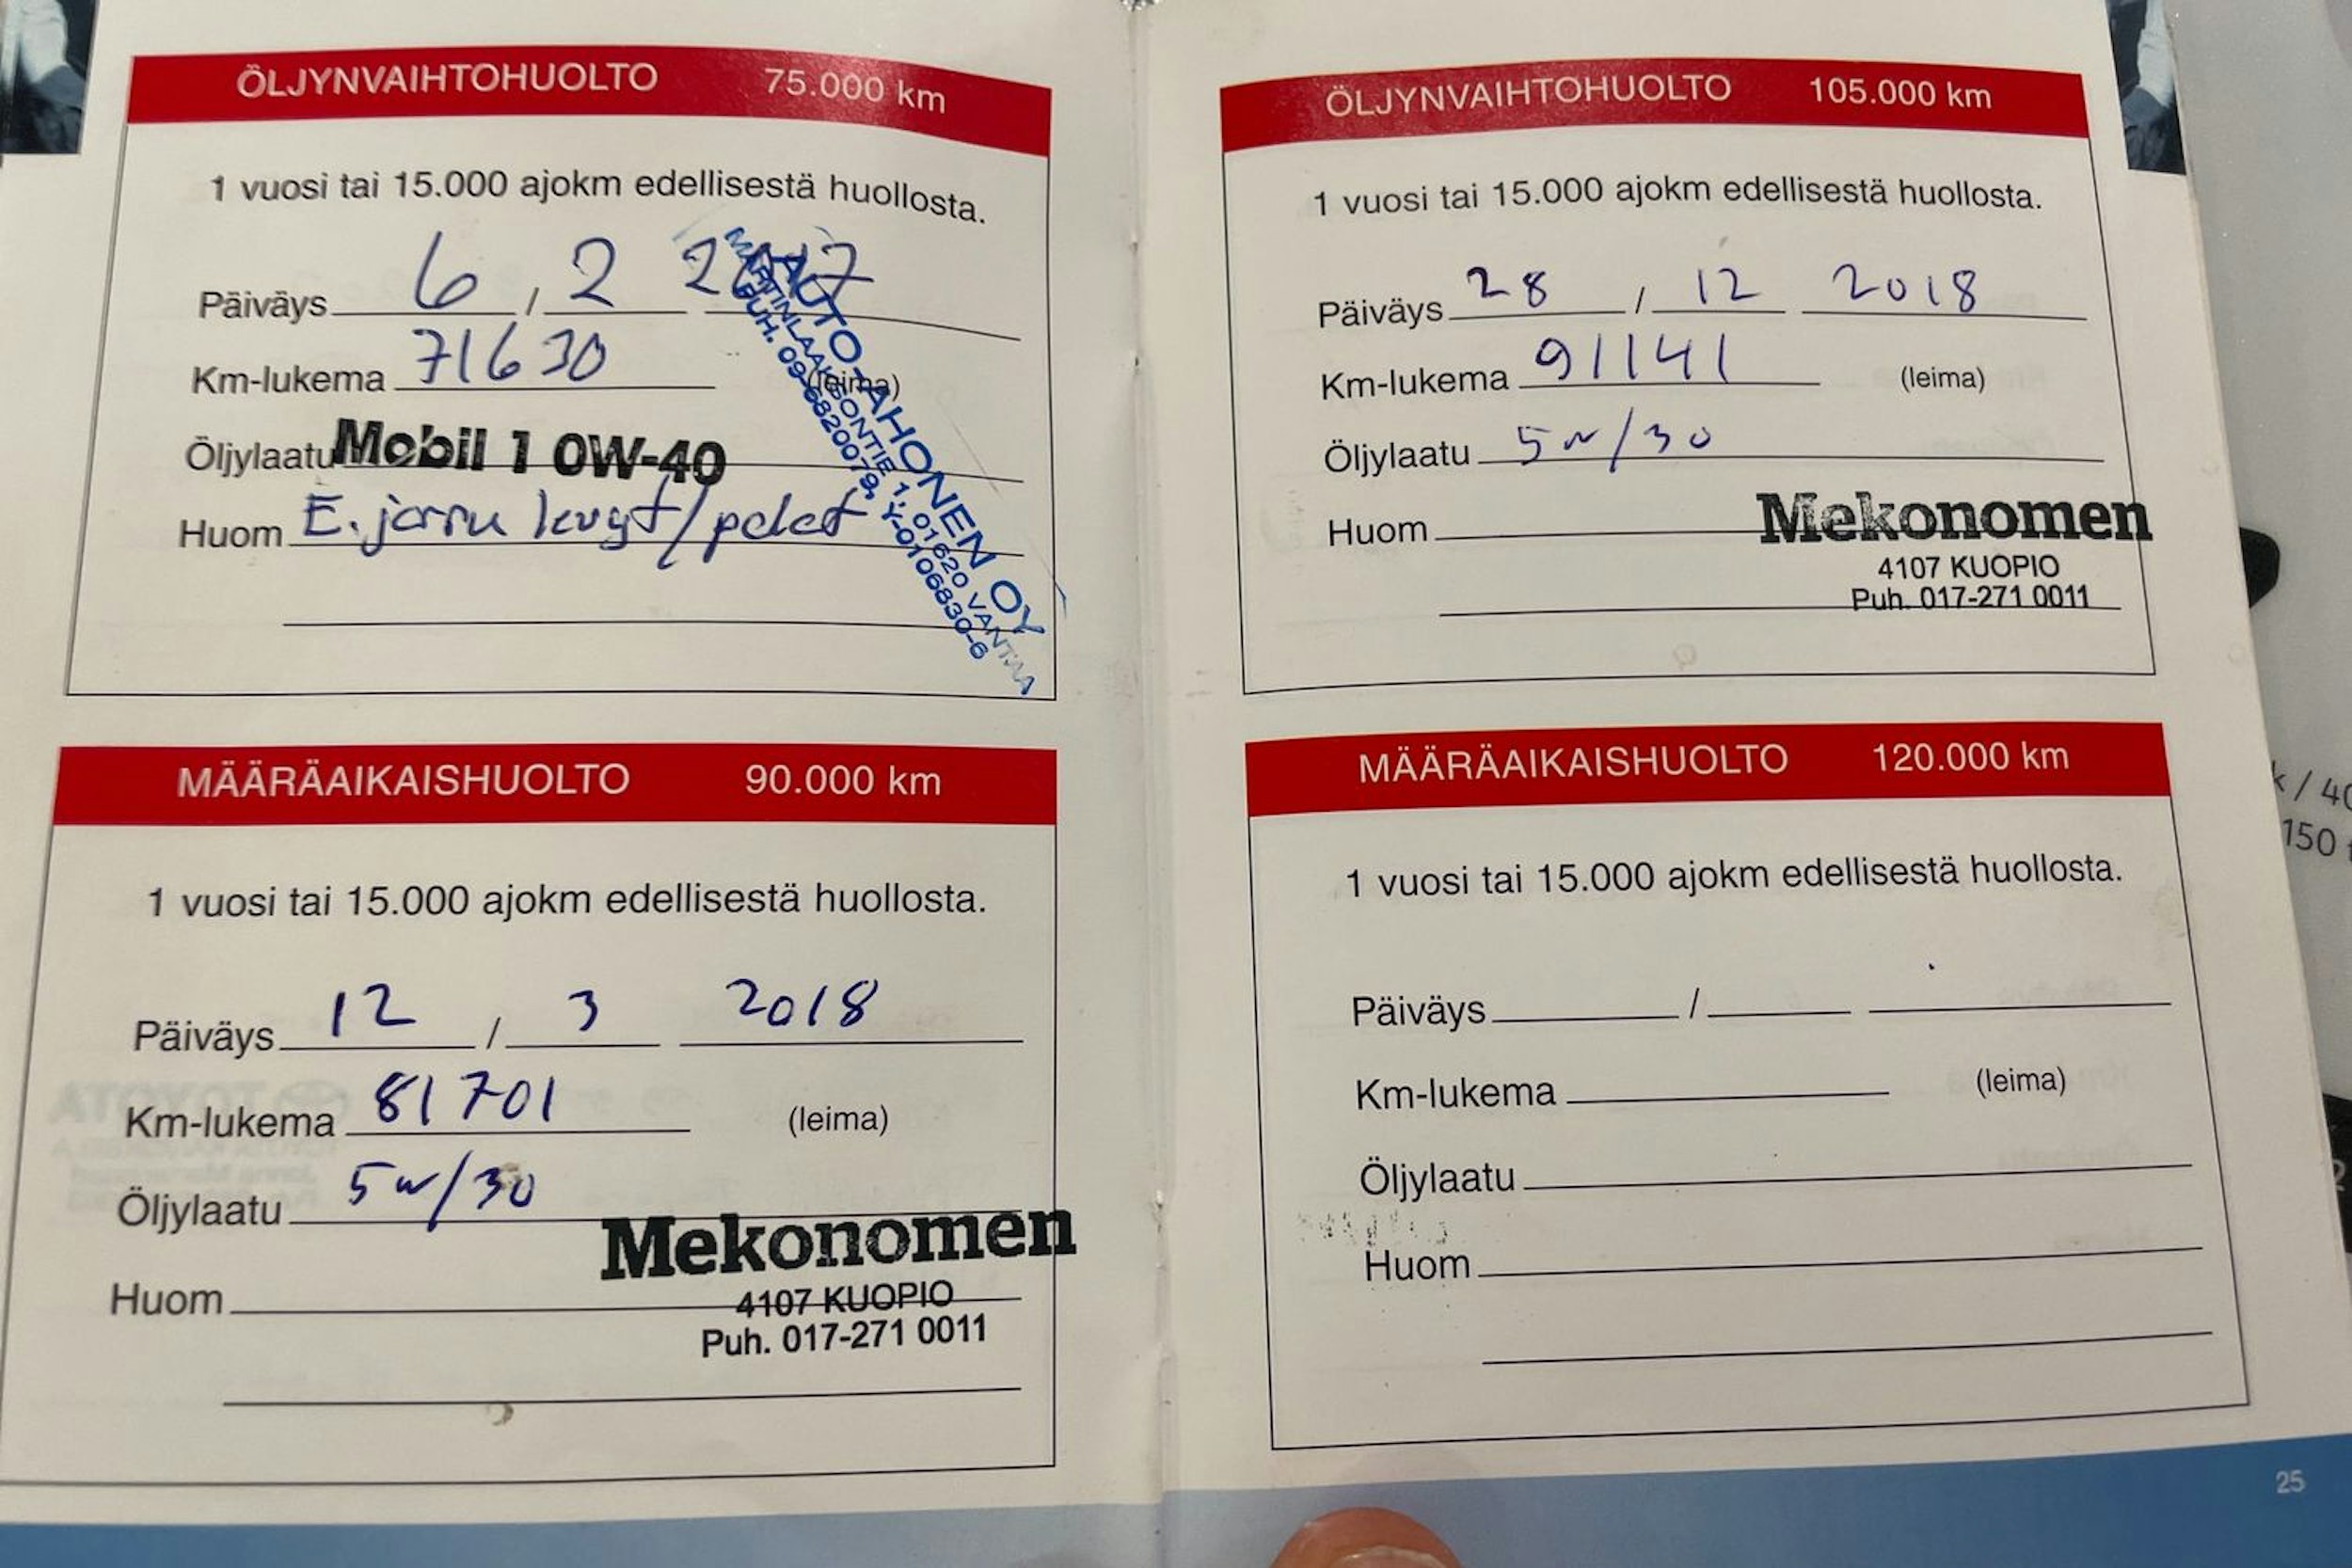 ÖLJYNVAIHTOHUOLTO 75.000 km
1 vuosi tai 15.000 ajokm edellisestä huollosta.
Päiväys 6 / 2 2017
Km-lukema 71630 (leima)
Öljylaatu Mobil 1 0W-40
Huom E. jarru levyt/palat
AUTO-AHONEN OY
MARTINLAAKSONTIE 1, 01620 VANTAA
PUH. 09-6820079, Y-0106830-6
MÄÄRÄAIKAISHUOLTO 90.000 km
1 vuosi tai 15.000 ajokm edellisestä huollosta.
Päiväys 12 / 3 2018
Km-lukema 81701 (leima)
Öljylaatu 5w/30
Mekonomen
Huom
4107 KUOPIO
Puh. 017-271 0011
ÖLJYNVAIHTOHUOLTO 105.000 km
1 vuosi tai 15.000 ajokm edellisestä huollosta.
Päiväys 28 / 12 2018
Km-lukema 91141 (leima)
Öljylaatu 5w/30
Huom
Mekonomen
4107 KUOPIO
Puh. 017-271 0011
MÄÄRÄAIKAISHUOLTO 120.000 km
1 vuosi tai 15.000 ajokm edellisestä huollosta.
Päiväys /
Km-lukema (leima)
Öljylaatu
Huom
25
k / 40
150